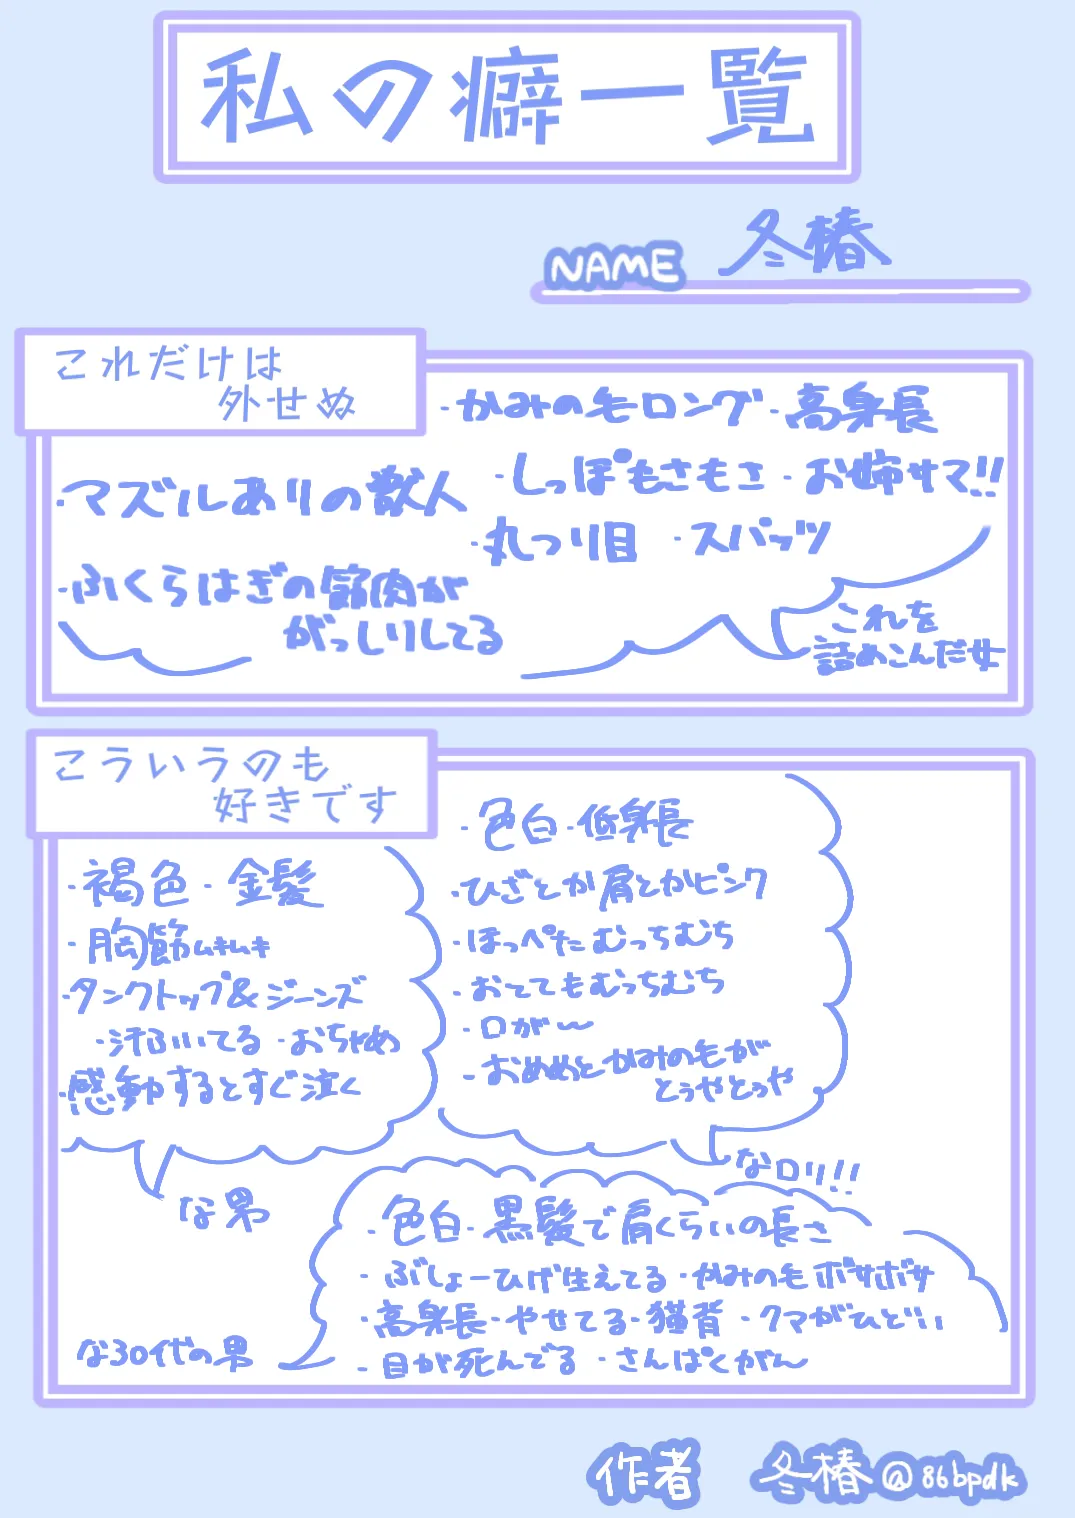 私の癖一覧
NAME 冬椿
これだけは
外せぬ
・かみの毛ロング ・高身長
・マズルありの獣人
・しっぽもさもさ ・お姉サマ!!
・丸つり目 ・スパッツ
・ふくらはぎの筋肉が
がっしりしてる
これを
詰めこんだ女
こういうのも
好きです
・褐色 ・金髪
・胸筋ムキムキ
・タンクトップ&ジーンズ
・汗ふいてる ・おちゃめ
・感動するとすぐ泣く
な男
・色白 ・低身長
・ひざとか肩とかピンク
・ほっぺたむっちむち
・おててもむっちむち
・口が〜
・おめめとかみの毛が
とぅやとぅや
なロリ!!
・色白 ・黒髪で肩くらいの長さ
・ぶしょーひげ生えてる ・かみの毛ボサボサ
・高身長 ・やせてる ・猫背 ・クマがひどい
・目が死んでる ・さんぱくがん
な30代の男
作者 冬椿@86bpdk